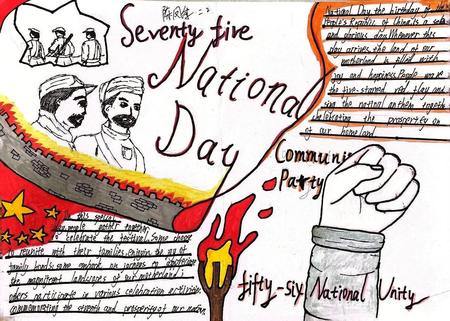 Seventy five
National
Day
National Day the birthday of the
People's Republic of
and glorious day. Whenever this
day arrives the land of our
motherland is filled with
joy and happiness. People wave
the five-starred red flag and
sing the national anthem together
celebrating the prosperity
of our homeland
Communi
Party
people gather together
celebrate the festival. Some choose
to reunite with their families enjoying the joy of
family; some embark on
the magnificent landscapes of our motherland;
others participate in various celebration activities
commemorating the strength and prosperity of our nation.
fifty-six National Unity